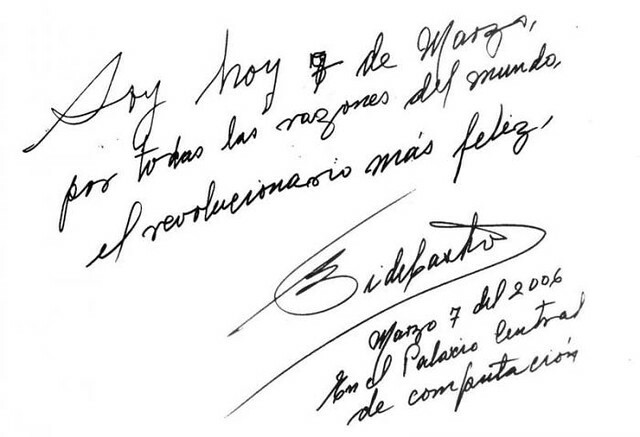 Soy hoy 7 de Marzo,
por todas las razones del mundo,
el revolucionario más feliz,
Fidel Castro
Marzo 7 del 2006
En el Palacio Central
de computación